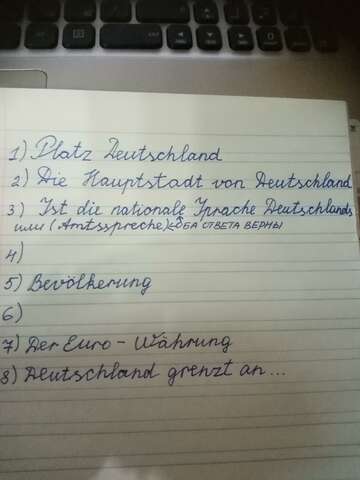 1) Platz Deutschland
2) Die Hauptstadt von Deutschland
3) Ist die nationale Sprache Deutschlands
или (Amtsspreche) ← ОБА ОТВЕТА ВЕРНЫ
4)
5) Bevölkerung
6)
7) Der Euro - Währung
8) Deutschland grenzt an...